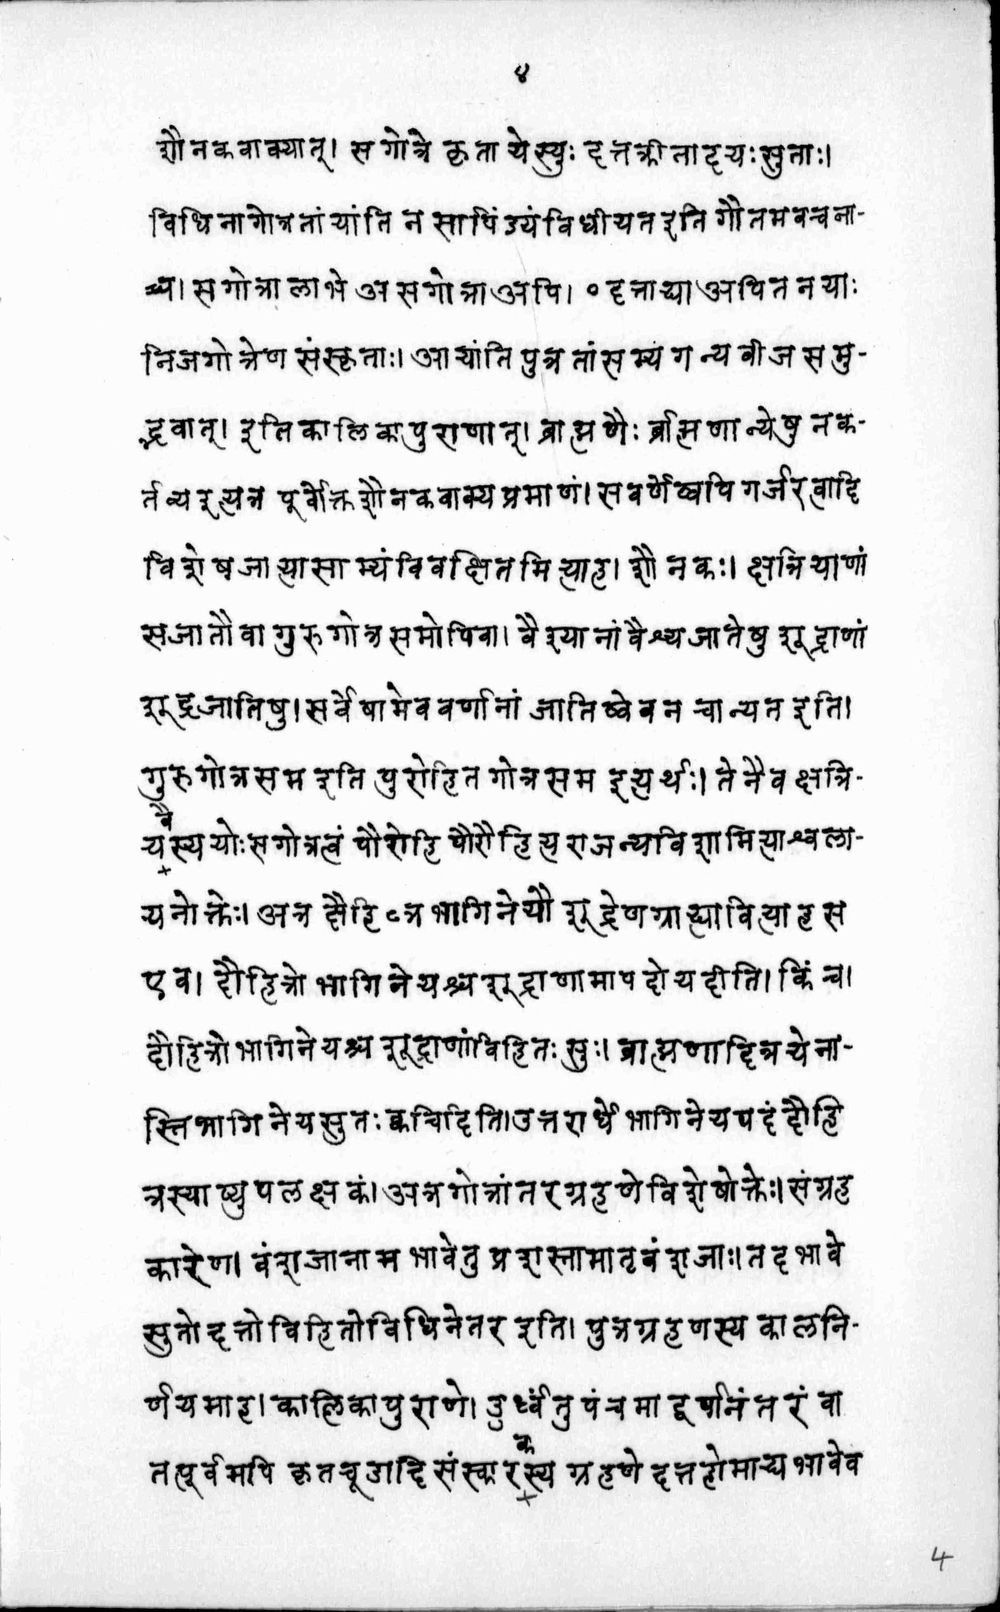 ४
शौनकवाक्यात्। सगोत्रे कृता येस्युः दत्तक्रीतादयःसुताः।
विधिनागोत्रतांयांति न सापिंड्यंविधीयतइति गौतमवचना-
च्च। सगोत्रालाभे असगोत्राअपि। ॰दत्ताद्याअपितनयाः
निजगोत्रेण संस्कृताः। आयांति पुत्रतांसम्यगन्यबीजसमु-
द्भवात्। इतिकालिकापुराणात्। ब्राह्मणैः र्ब्राह्मणान्येषु नक-
र्तव्यइत्यत्र पूर्वोक्तशौनकवाक्यप्रमाणं। सवर्णेष्वपि गर्जरत्वादि
विशेषजात्यासाम्यंविवक्षितमित्याह। शौनकः। क्षत्रियाणां
सजातौवा गुरुगोत्रसमोपिवा। वैश्यानांवैश्यजातेषु शूद्राणां
शूद्रजातिषु। सर्वेषामेववर्णानां जातिष्वेवनचान्यतइति।
गुरुगोत्रसमइति पुरोहितगोत्रसमइत्यर्थः। तेनैवक्षत्रि-
वै
यस्ययोःसगोत्रत्वं पौरोहिपौरौहित्यराजन्यविशामित्याश्वला-
यनोक्तेः। अत्रदौहि॰त्रभागिनेयौ शूद्रेणग्राह्यावित्याहस
एव। दौहित्रोभागिनेयश्चशूद्राणामापदोयदीति। किंच।
दौहित्रोभागिनेयश्चशूद्राणांविहितःसुः। ब्राह्मणादित्रयेना-
स्तिभागिनेयसुतःक्वचिदिति।उत्तरार्धेभागिनेयपदंदौहि
त्रस्याप्युपलक्षकं। अत्रगोत्रांतरग्रहणेविशेषोक्तेः। संग्रह
कारेण। वंशजानामभावेतुप्रशस्तामातृवंशजाः। तदभावे
सुतोदत्तोविहितोविधिनेतरइति। पुत्रग्रहणस्यकालनि-
र्णयमाह। कालिकापुराणे। उर्ध्वंतुपंचमाद्वर्षानंतरंवा
क
तत्पूर्वमपि कृतचूडादिसंस्कारस्य ग्रहणे दत्तहोमाद्यभावेव
4